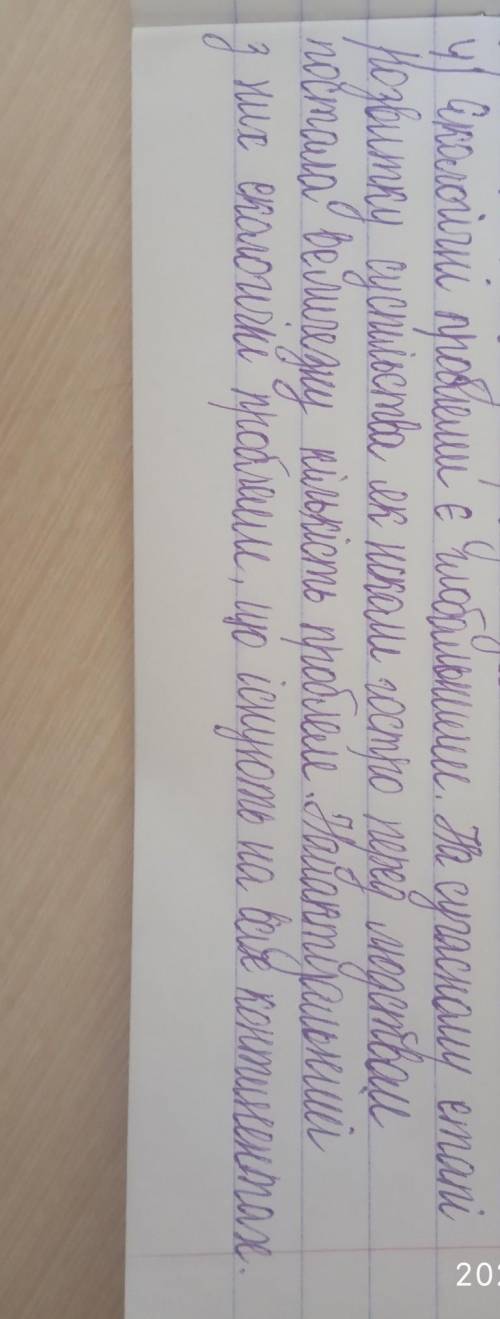 4) Екологічні проблеми є глобальними. На сучасному етапі
розвитку суспільства як ніколи гостро перед людством
постала величезну кількість проблем. Найактуальніші
з них екологічні проблеми, що існують на всіх континентах.
202